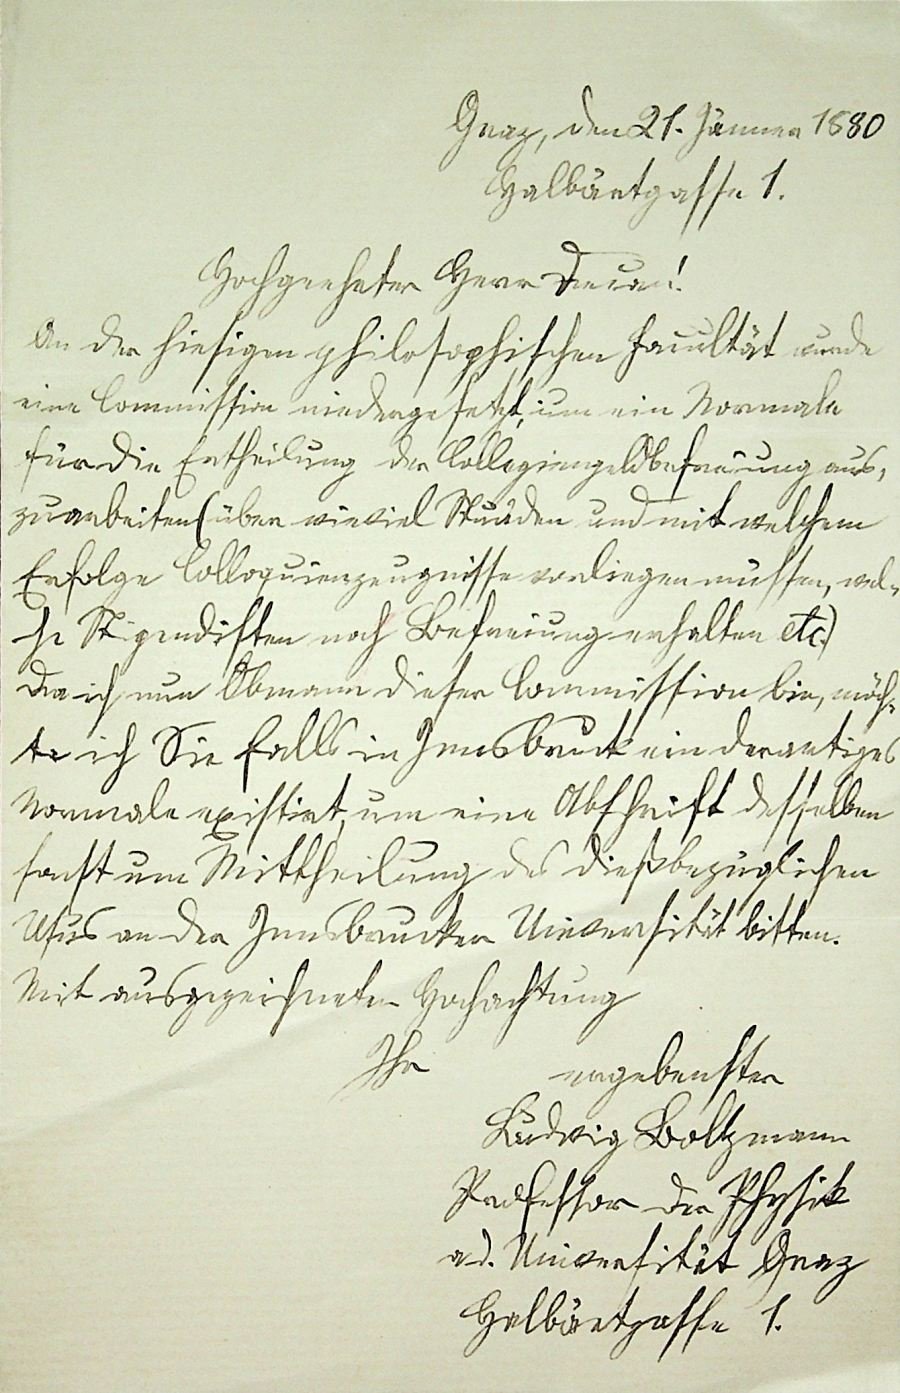 Graz, den 21. Jänner 1880
Halbärtgasse 1.
Hochgeehrter Herr Decan!
An der hiesigen philosophischen Facultät wurde
eine Commission niedergesetzt, um ein Normale
für die Ertheilung der Collegiengeldbefreiung aus-
zuarbeiten (über wieviel Stunden und mit welchem
Erfolge Colloquienzeugnisse vorliegen müssen, wel-
che Stipendisten noch Befreiung erhalten etc.)
Da ich nun Obmann dieser Commission bin, möch-
te ich Sie falls in Innsbruck ein derartiges
Normale existirt, um eine Abschrift desselben
sonst um Mittheilung des dießbezüglichen
Usus an der Innsbrucker Universität bitten.
Mit ausgezeichneter Hochachtung
Ihr ergebenster
Ludwig Boltzmann
Professor der Physik
a.d. Universität Graz
Halbärtgasse 1.